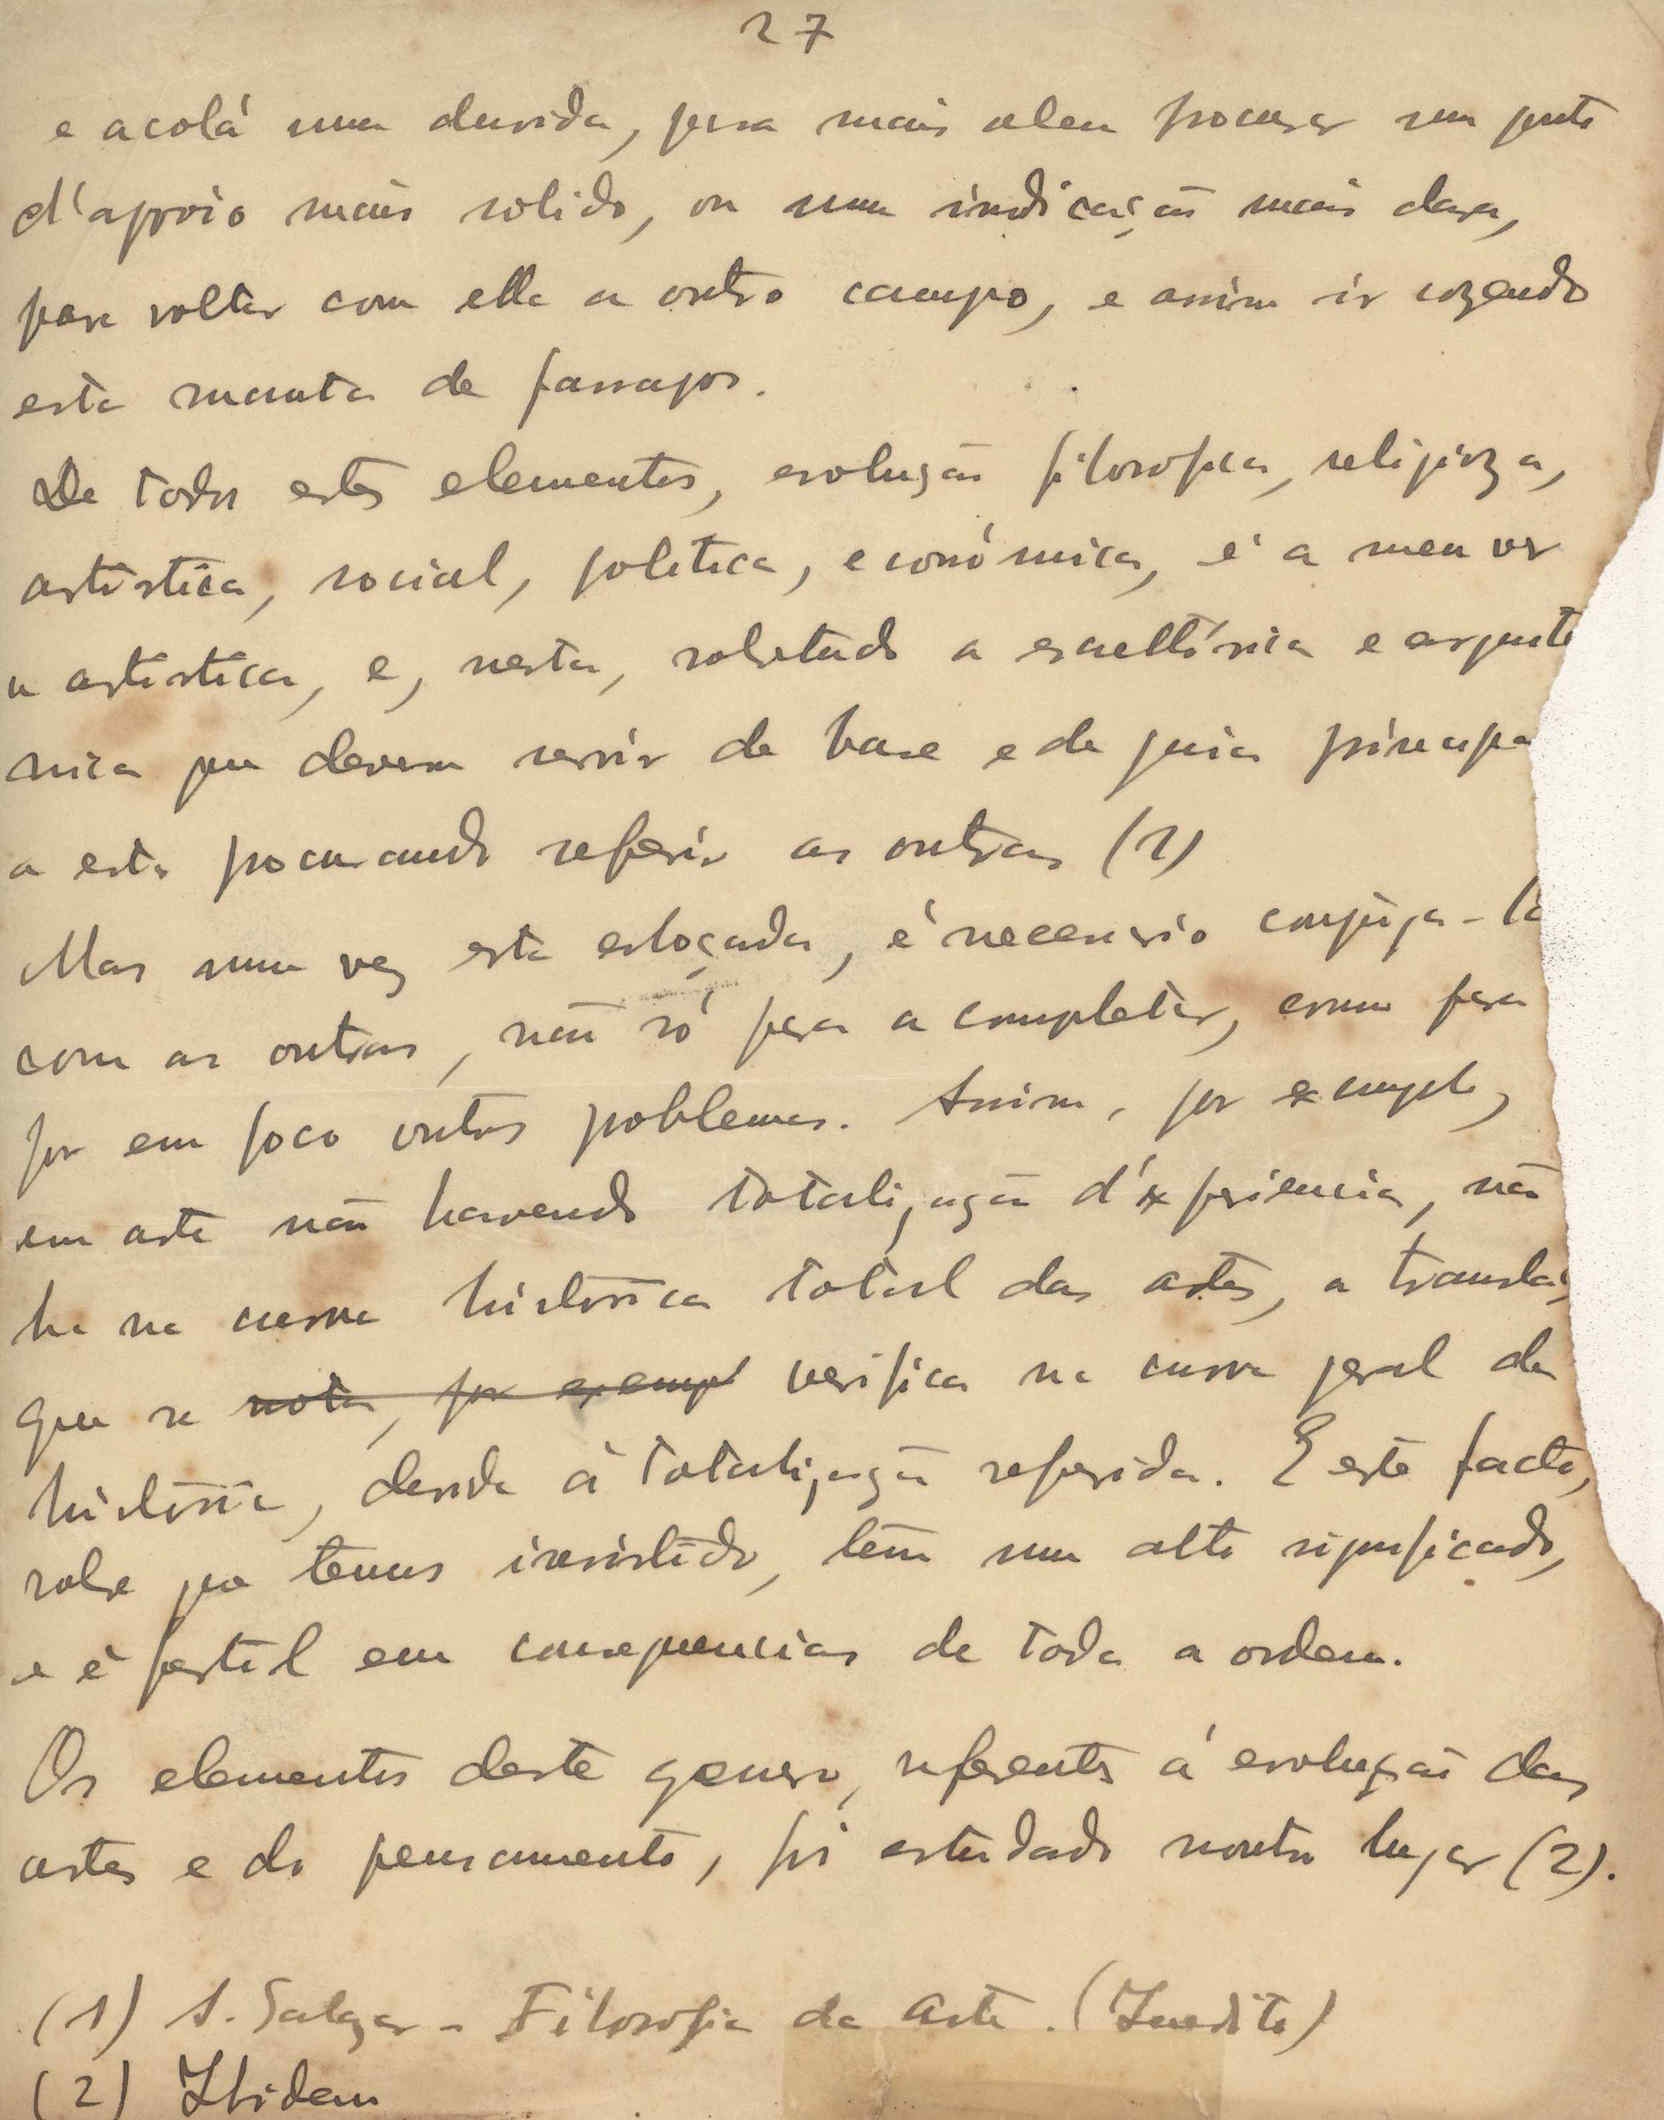 27
e acolá uma duvida, para mais alem procurar um ponto
d'apoio mais solido, ou uma indicação mais clara,
para voltar com ella a outro campo, e assim ir cozendo
esta manta de farrapos.
De todos estes elementos, evolução filosofica, religioza,
artística, social, politica, económica, é a meu ver
a artistica, e, nesta, sobretudo a escultórica e arquitectó
nica que devem servir de base e de guia principa
a esta procurando referir as outras (1)
Mas uma vez esta esboçada, é necessario conjuga-la
com as outras, não só para a completar, como para
por em foco outros problemas. Assim, por exemplo,
em arte não havendo totalização d'experiencia, não
ha na curva histórica total das artes, a translaç
que se nota, por exempl verifica na curva geral da
história, devida à totalização referida. E este facto,
sobre que temos insistido, tem um alto significado,
e é fertil em consequencias de toda a ordem.
Os elementos deste genero, referentes á evolução das
artes e do pensamento, foi estudado noutro lugar (2).
(1) A. Salazar - Filosofia da Arte. (Inedito)
(2) Ibidem